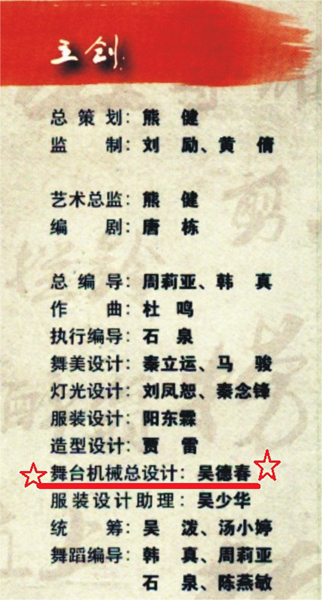 主创
总策划：熊健
监制：刘励、黄倩
艺术总监：熊健
编剧：唐栋
总编导：周莉亚、韩真
作曲：杜鸣
执行编导：石泉
舞美设计：秦立运、马骏
灯光设计：刘凤恕、秦念锋
服装设计：阳东霖
造型设计：贾雷
舞台机械总设计：吴德春
服装设计助理：吴少华
统筹：吴泼、汤小婷
舞蹈编导：韩真、周莉亚
石泉、陈燕敏